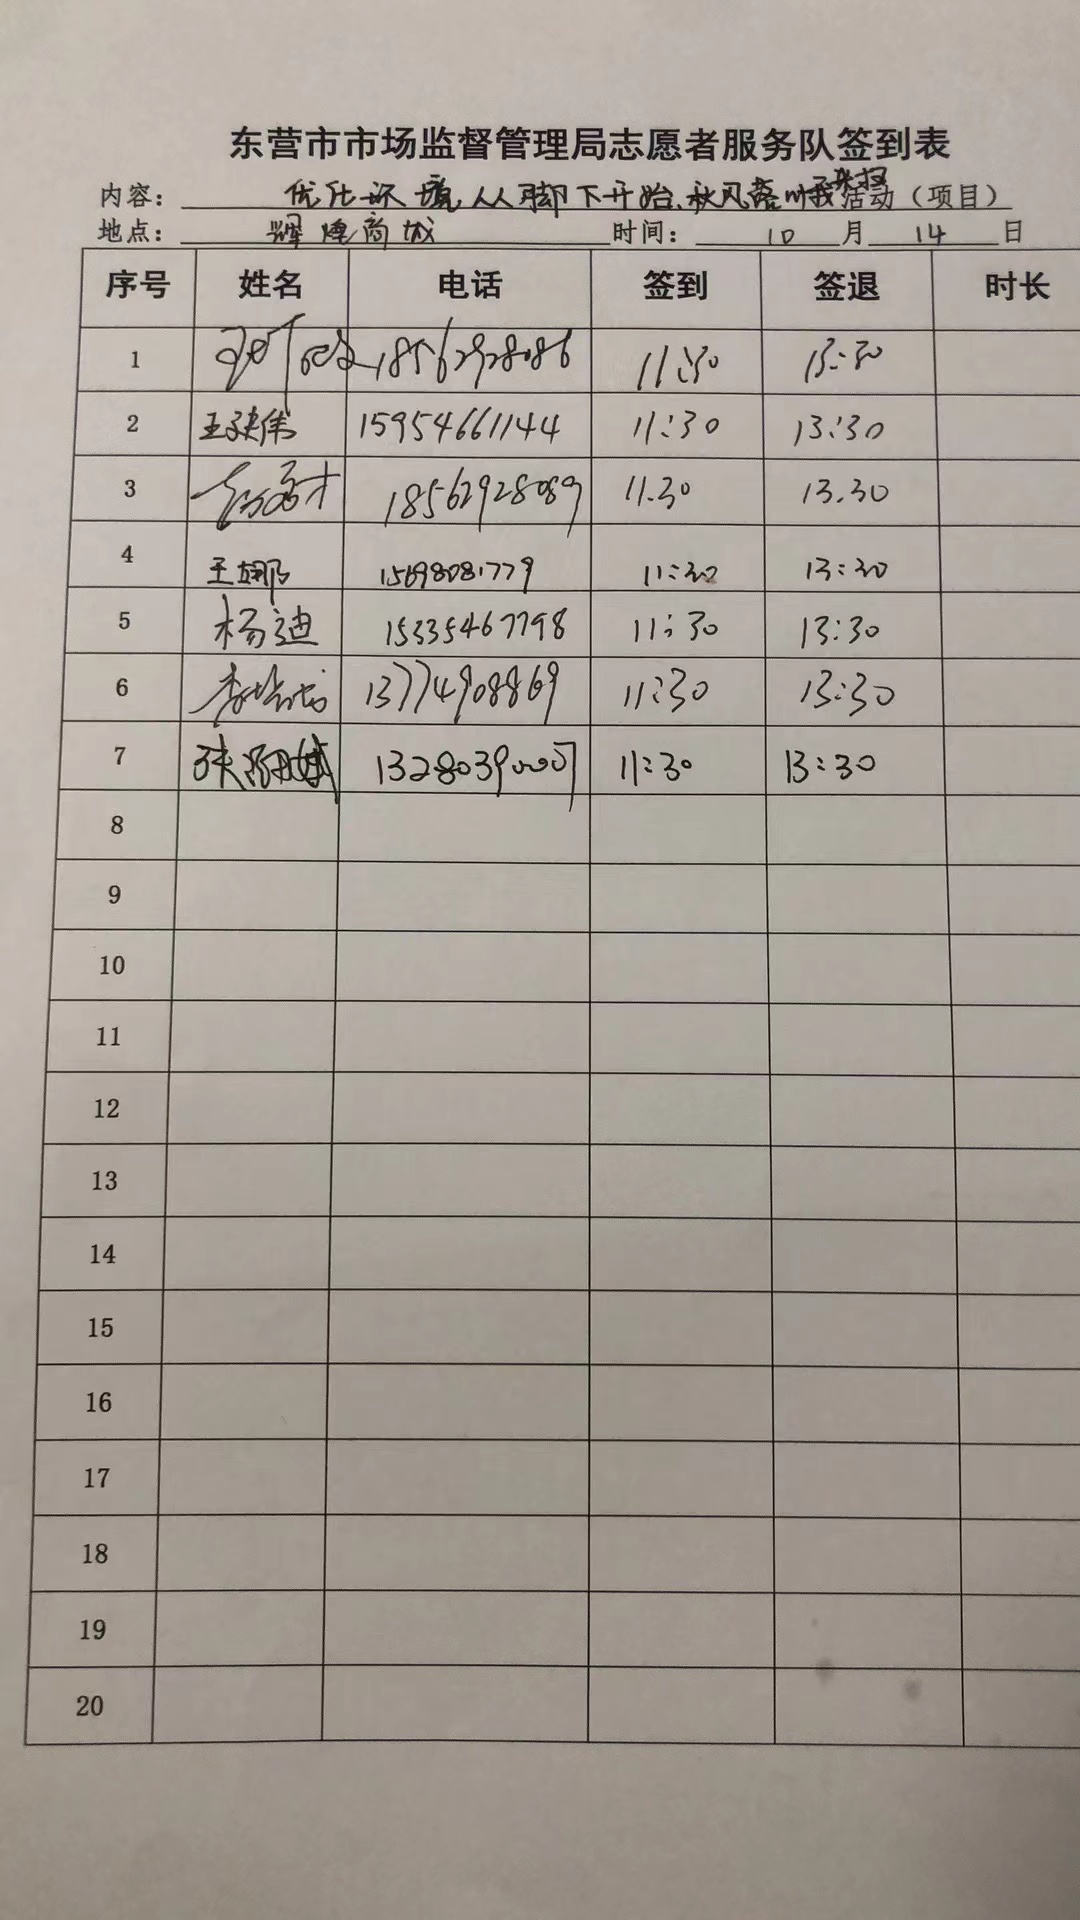 东营市市场监督管理局志愿者服务队签到表
内容： 优化环境从脚下开始、秋风落叶我来扫 活动（项目）
地点： 辉煌商城 时间： 10 月 14 日
序号 姓名 电话 签到 签退 时长
1 18562928086 11:30 13:30
2 王 伟 15954661144 11:30 13:30
3 18562928089 11.30 13.30
4 王娜 15698081779 11:30 13:30
5 杨迪 15335467798 11:30 13:30
6 李 13774908869 11:30 13:30
7 张 13280390007 11:30 13:30
8
9
10
11
12
13
14
15
16
17
18
19
20